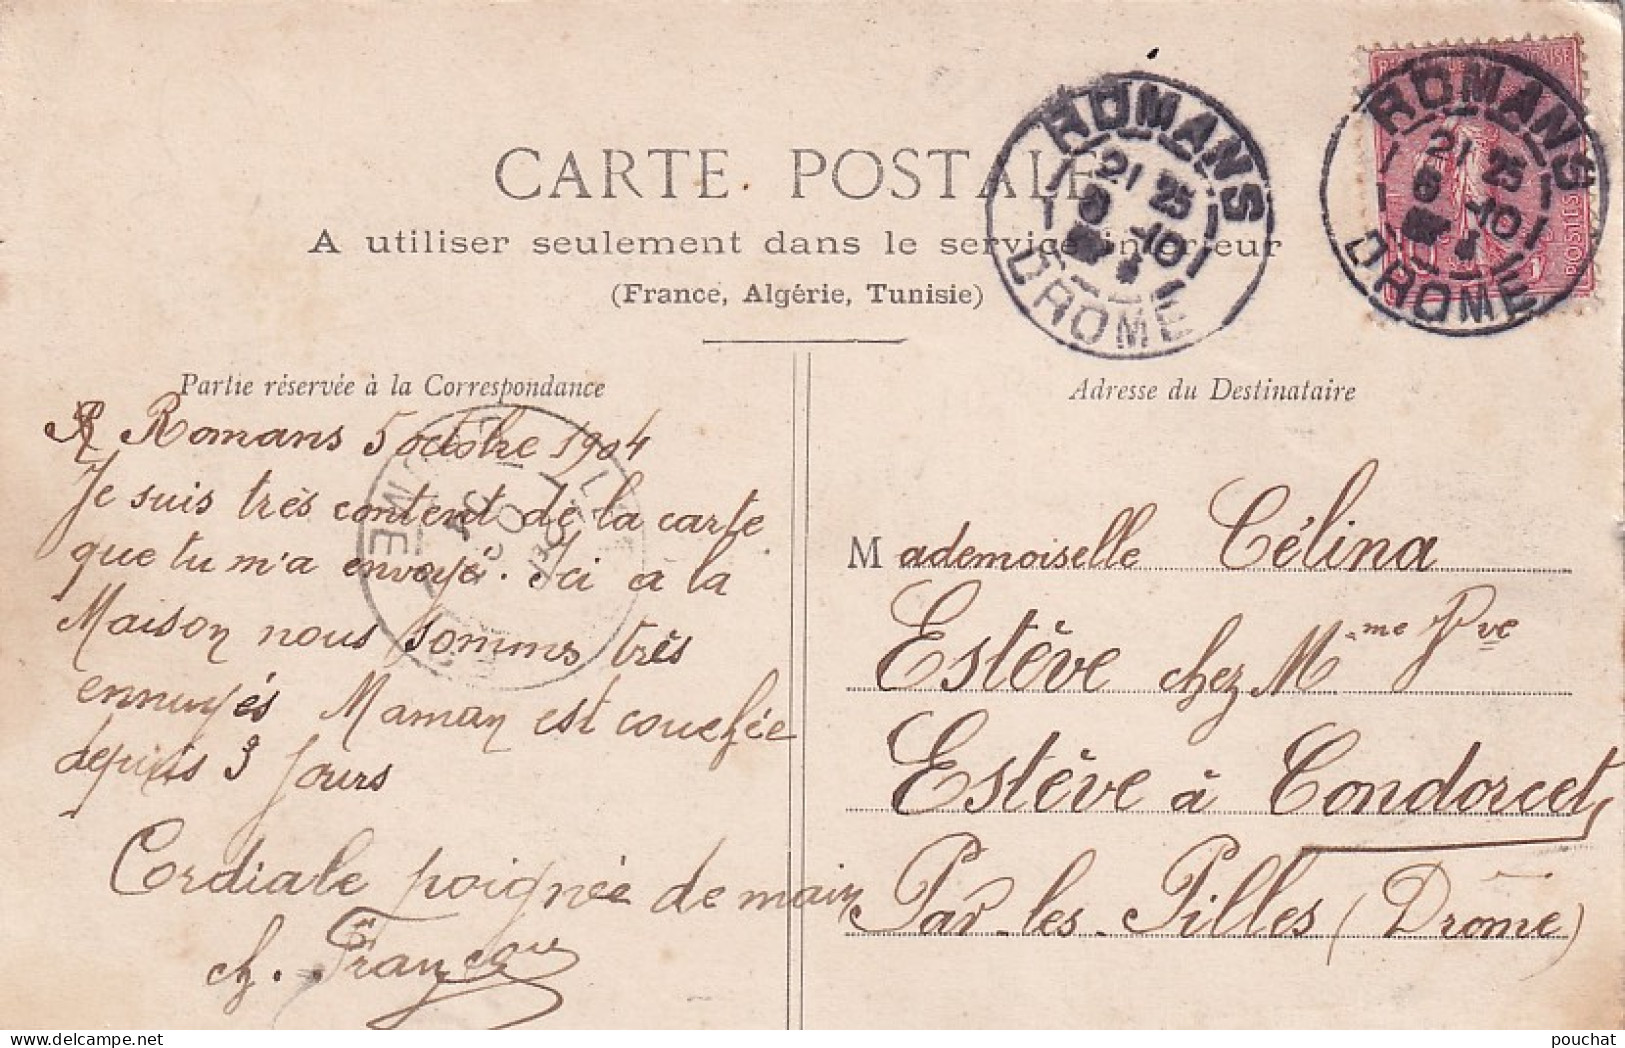 CARTE POSTALE
A utiliser seulement dans le service intérieur
(France, Algérie, Tunisie)
ROMANS
21 25
6 -10
DROME
ROMANS
21 25
6 -10
DROME
POSTES
Partie réservée à la Correspondance
Romans 5 octobre 1904
Je suis très content de la carte
que tu m'a envoyé. Ici a la
Maison nous somms très
ennuyés Maman est couchée
depuis 3 jours
Cordiale poignée de main
ch. Françou
Adresse du Destinataire
Mademoiselle Célina
Estève chez Mme Vve
Estève à Condorcet
Par-les-Pilles (Drôme)
pouchat